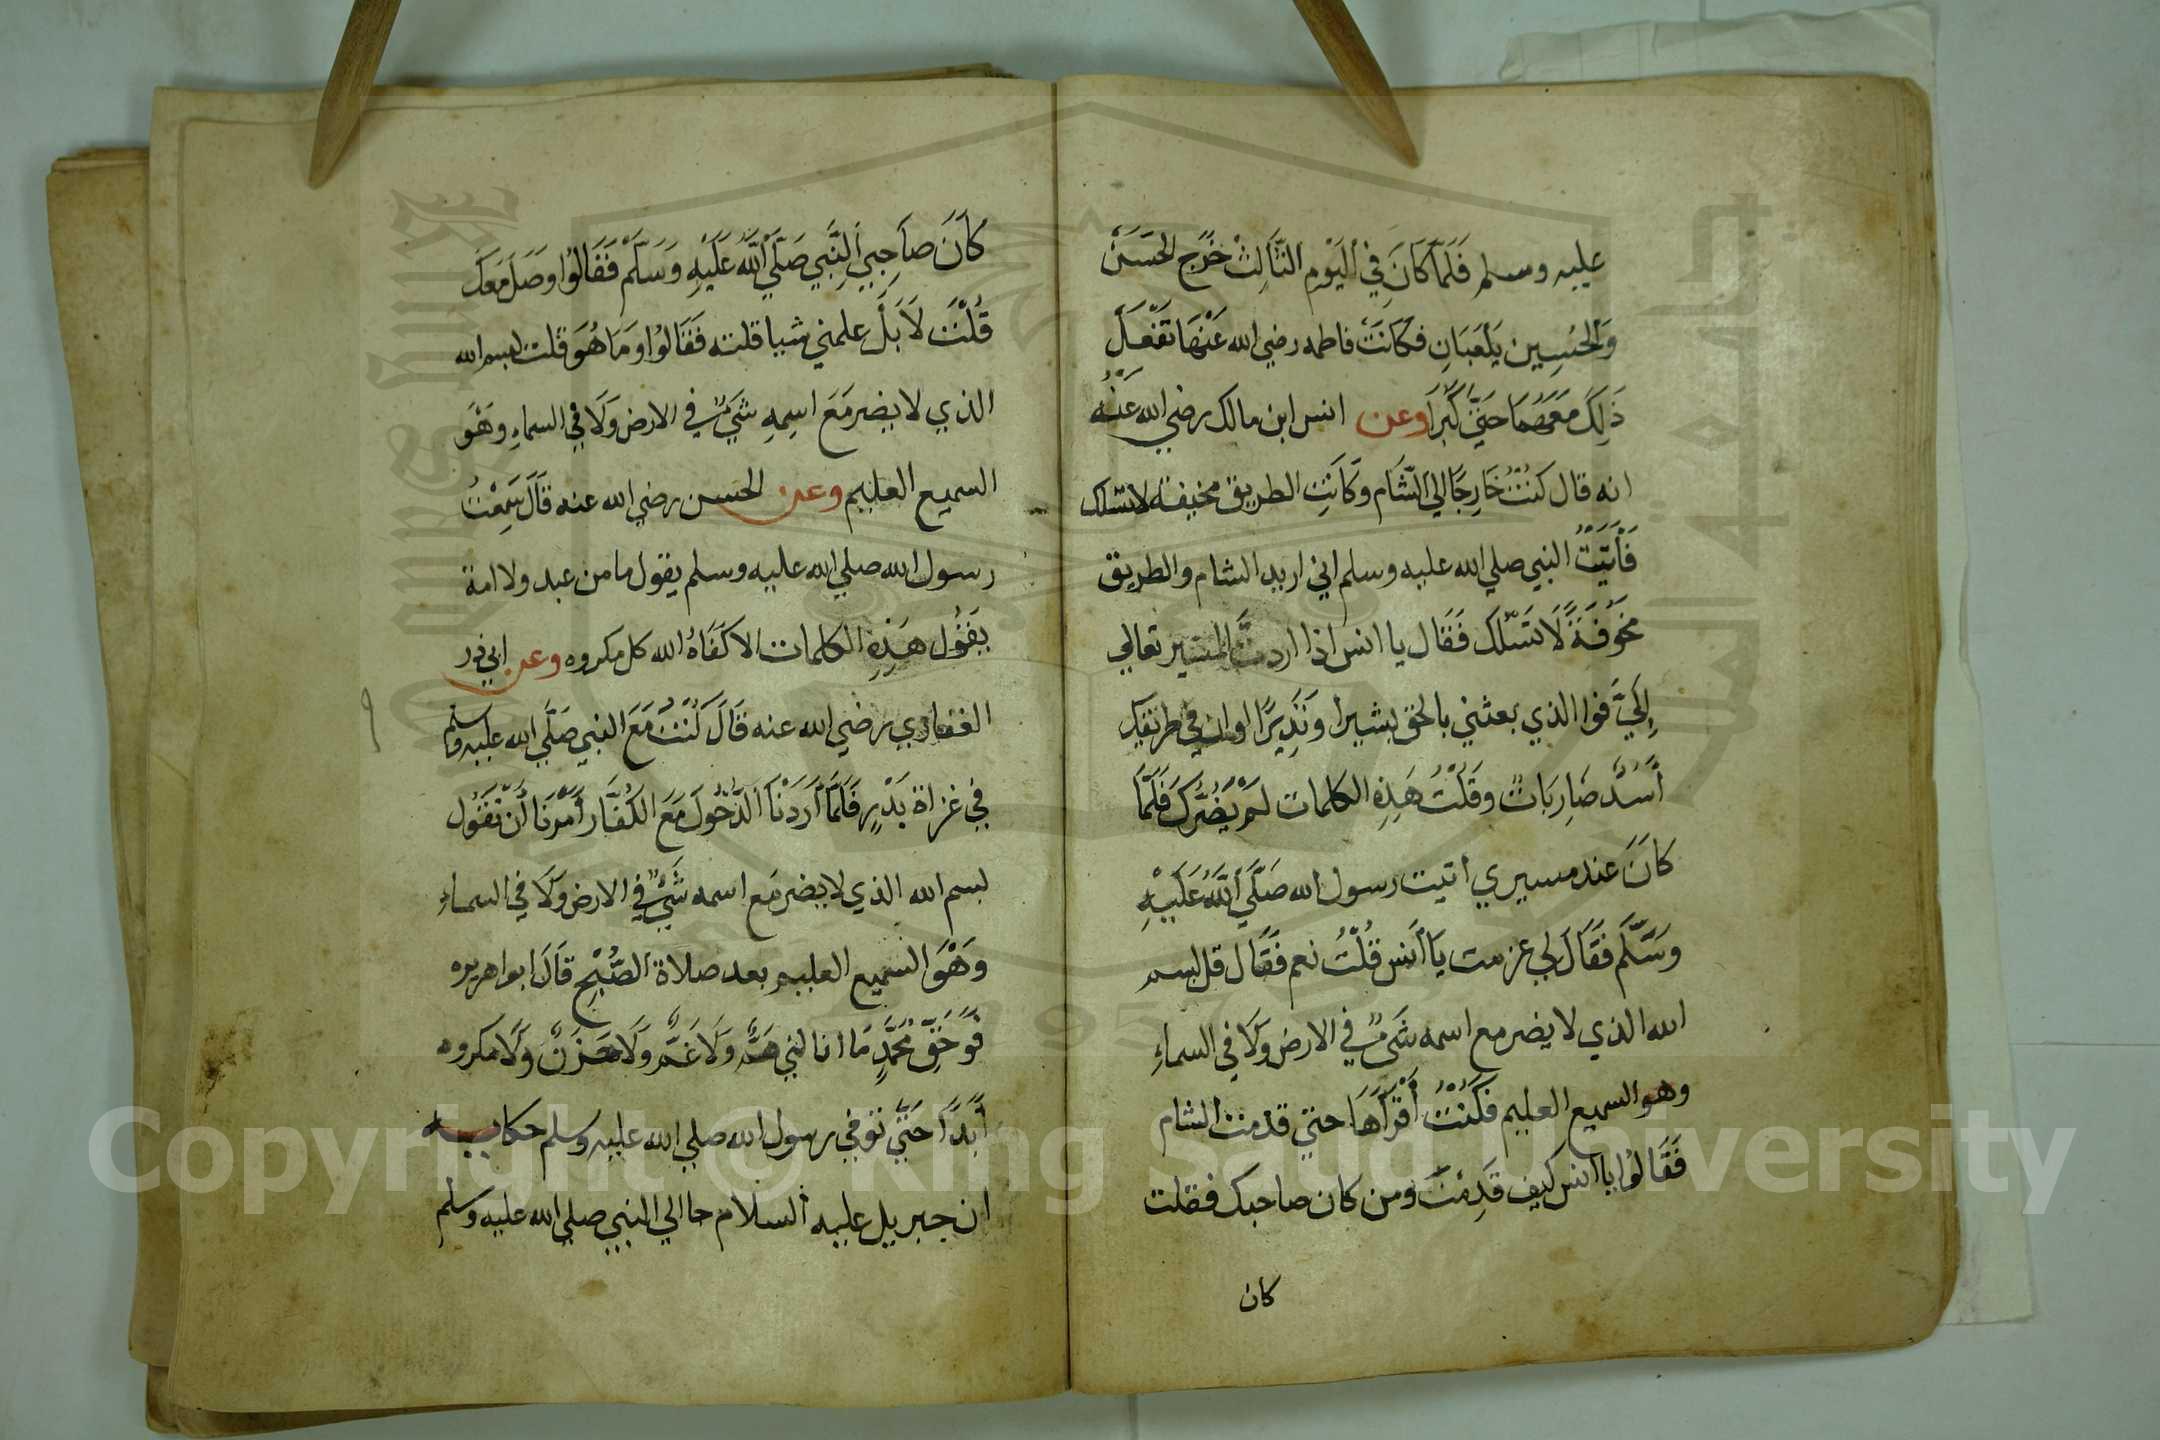 عليه وسلم فَلَمَّا كَانَ فِي اليَوْمِ الثَّالِثْ خَرَج الحَسَنْ
وَالحُسِين يَلْعَبَانِ فكَانَتْ فاطمه رضي الله عَنْهَا تَفْعَلْ
ذَلِكَ مَعَهُمَا حَتَّي كَبُرَا وعن انس ابن مالك رضي الله عَنْه
انه قال كنتُ خَارِجًا الي الشَّام وَكَانَتِ الطريق مخيفة لا تسلك
فَأَتَيْتُ النبي صلي الله عليه وسلم اني اريد الشام والطريق
مَخُوْفَةً لَا تَسْلك فَقَال يا انس اذا اردتَّ المسير تعالي
إِلَيَّ فوا الذي بعثني بالحق بشيرا وَنَذِيرًا لو ان في طريقك
أَسَدٌ ضَارِبَاتٌ وقَلْتْ هَذِهِ الكلمات لم يَضُرّكَ فَلَمَّا
كَانَ عند مسيري اتيت رسول الله صَلَّي اللَّهُ عَلَيْهِ
وَسَلَّم فَقَالَ لِي عزمت يَا أَنس قُلْتُ نعم فَقَال قل بسم
الله الذي لا يضر مع اسمه شَيٌ في الارض وَلَا في السماءِ
وهو السميع العليم فَكنْتُ أَقْرَأُهَا حتي قدمت الشام
فَقَالُوا يا انس كيف قَدِمْتَ ومن كان صاحبك فقلت
كان
كَانَ صَاحِبِي النَّبِي صَلَّي اللَّهُ عَلَيْهِ وَسَلَّمْ فَقَالُوا وَصَلَ مَعَكَ
قُلْتُ لَا بَلْ علمني شيا قلته فَقَالُوا وَمَا هُوَ قلت بسم الله
الذي لا يضر مَعَ اسِمِهِ شَيٌ في الارض وَلَا فِي السماءِ وَهْوَ
السميع العليم وعن الحسن رضي الله عنه قَالَ سَمِعْتُ
رسول الله صلي الله عليه وسلم يقول ما من عبد ولا امة
يَقُول هَذِهِ الكلمات الا كَفَاهُ الله كل مكروه وعن ابي ذر
الغفاري رضي الله عنه قَالَ كُنْتُ مَعَ النبي صَلَّي الله عليه وسلم
فِي غزاة بَدْرٍ فَلَمَّا أَرَدْنَا الدُّخُولَ مَعَ الكُفَّار أَمَرَنَا أَنْ نَقُول
بسم الله الذي لا يضر مَع اسمه شَيٌ في الارض وَلَا فِي السماءِ
وَهْوَ السميع العليم بعد صلاة الصُّبْحِ قَالَ ابوا هريره
فَوَحَقِّ مُحَمَّدٍ مَا انالني هَمٌّ وَلَا غَمٌّ وَلَا حَزَنٌ وَلَا مكروه
أَبَدًا حَتَّي توفي رسول الله صلي الله عليه وسلم حكايه
ان جبريل عليه السلام جا الي النبي صلي الله عليه وسلم
Copyright © King Saud University